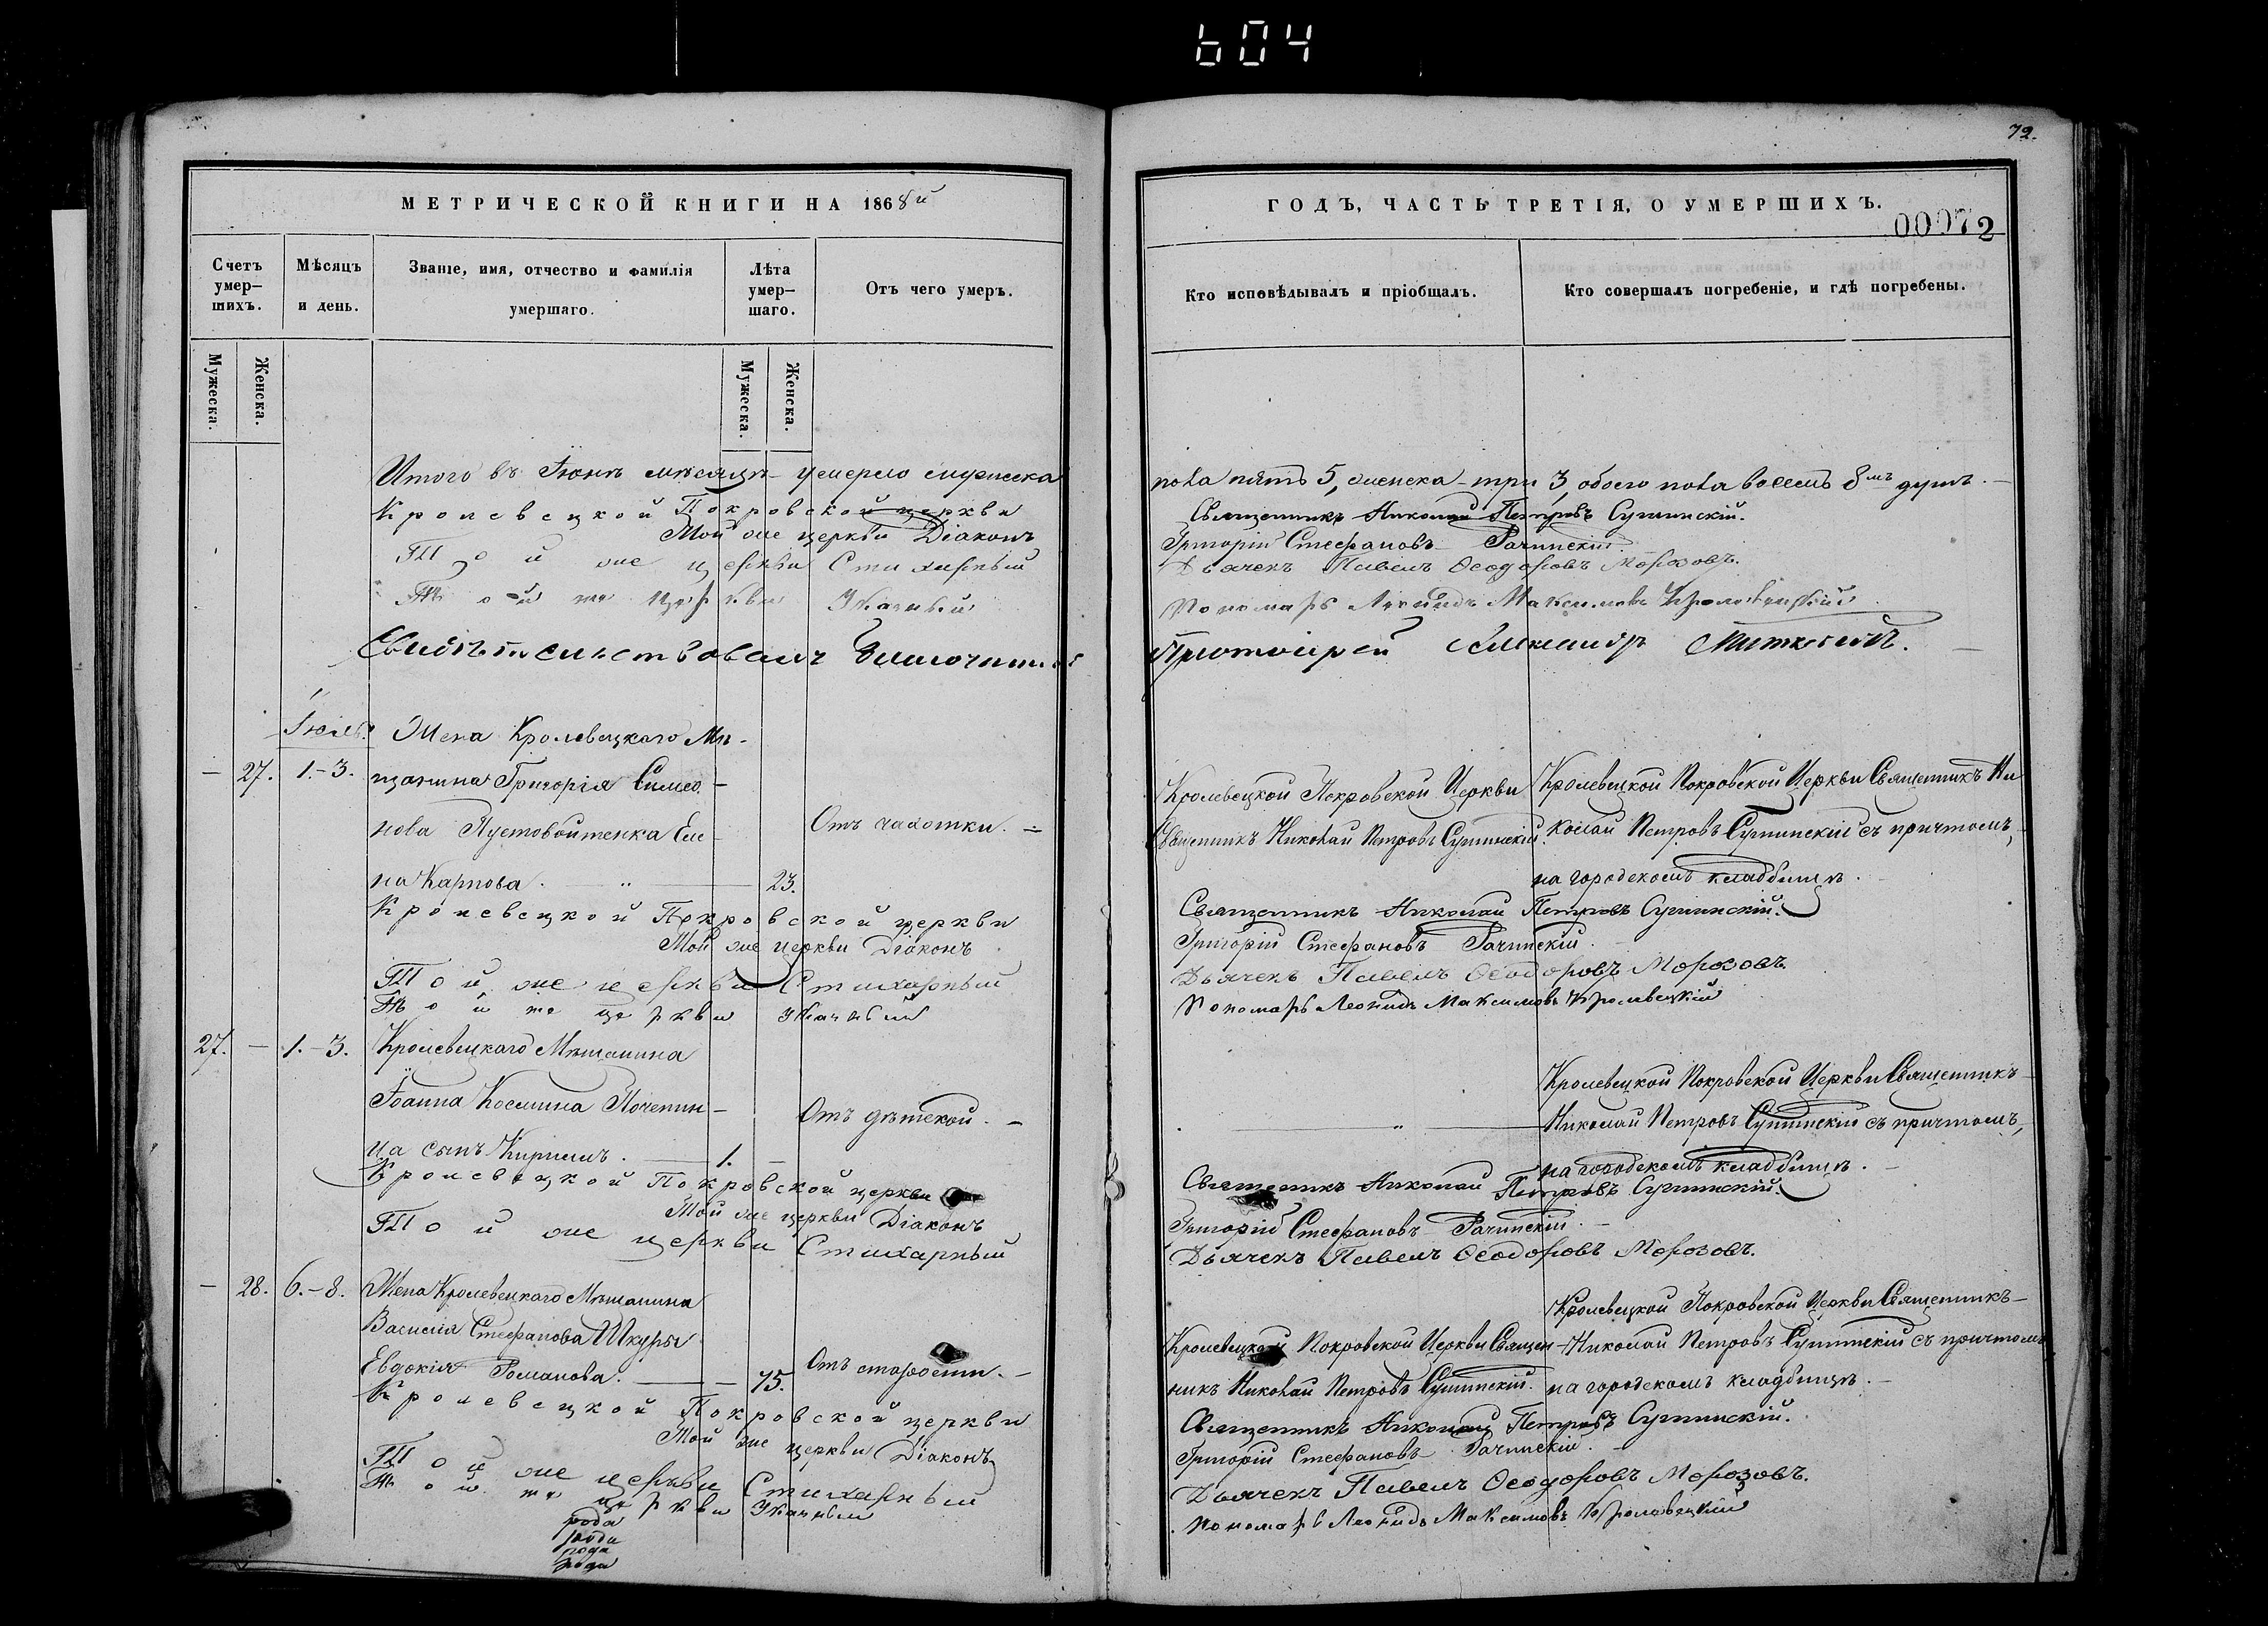 604
72.
МЕТРИЧЕСКОЙ КНИГИ НА 1868й
ГОДЪ, ЧАСТЬ ТРЕТІЯ, О УМЕРШИХЪ.
00072
Счетъ умер–шихъ.
Мѣсяцъ и день.
Званіе, имя, отчество и фамилія умершаго.
Лѣта умер–шаго.
Отъ чего умеръ.
Кто исповѣдывалъ и пріобщалъ.
Кто совершалъ погребеніе, и гдѣ погребены.
Мужеска.
Женска.
Мужеска.
Женска.
Итого въ Іюнѣ мѣсяцѣ умерло мужеска
пола пять 5, женска три 3, обоего пола восемь 8мь душъ.
Кролевецкой Покровской церкви
Священникъ Николай Петровъ Сулинскій.
Той же церкви Діаконъ
Григорій Стефановъ Рачинскій.
Той же церкви Стихарный
Дьячекъ Павелъ Ѳеодоровъ Морозовъ.
Той же церкви Указный
Пономарь Леонидъ Максимовъ Кролевецкій
Свидѣтельствовалъ Благочинный
Протоіерей Александръ
Іюль.
Жена Кролевецкаго Мѣ-
– 27. 1.–3. щанина Григорія Симео-
нова Пустовойтенка Еле-
на Карпова. 23.
Отъ чахотки.
Кролевецкой Покровской Церкви
Священникъ Николай Петровъ Сулинскій.
Кролевецкой Покровской Церкви Священникъ Ни
колай Петровъ Сулинскій съ причтомъ,
на городскомъ кладбищѣ.
Кролевецкой Покровской церкви
Священникъ Николай Петровъ Сулинскій.
Той же церкви Діаконъ
Григорій Стефановъ Рачинскій.
Той же церкви Стихарный
Дьячекъ Павелъ Ѳеодоровъ Морозовъ.
Той же церкви Указный
Пономарь Леонидъ Максимовъ Кролевецкій
27. – 1.–3. Кролевецкаго Мѣщанина
Іоанна Космина Почепин-
ца сынъ Кириллъ. 1.
Отъ дѣтской.
Кролевецкой Покровской Церкви Священникъ
Николай Петровъ Сулинскій съ причтомъ,
на городскомъ кладбищѣ.
Кролевецкой Покровской церкви
Священникъ Николай Петровъ Сулинскій.
Той же церкви Діаконъ
Григорій Стефановъ Рачинскій.
Той же церкви Стихарный
Дьячекъ Павелъ Ѳеодоровъ Морозовъ.
– 28. 6.–8. Жена Кролевецкаго Мѣщанина
Василія Стефанова Шкуры
Евдокія Романова. 75.
Отъ старости.
Кролевецкой Покровской Церкви Священ-
никъ Николай Петровъ Сулинскій.
Кролевецкой Покровской Церкви Священникъ
Николай Петровъ Сулинскій съ причтомъ
на городскомъ кладбищѣ.
Кролевецкой Покровской церкви
Священникъ Николай Петровъ Сулинскій.
Той же церкви Діаконъ
Григорій Стефановъ Рачинскій.
Той же церкви Стихарный
Дьячекъ Павелъ Ѳеодоровъ Морозовъ.
Той же церкви Указный
Пономарь Леонидъ Максимовъ Кролевецкій
рода
рода
рода
рода